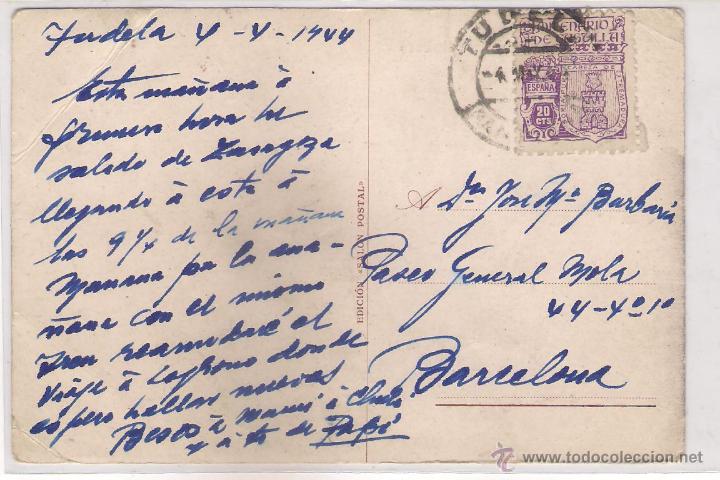 Tudela 4-4-1944
Esta mañana à
primera hora he
salido de Zaragoza
llegando à esta à
las 9 1/4 de la mañana
Mañana por la ma-
ñana con el mismo
tren reanudaré el
viaje à Logroño donde
espero hallar nuevas
Besos à Mamá à
y à ti de Papá
EDICIÓN «SALÓN POSTAL»
TUDELA
CENTENARIO
DE CASTILLA
ESPAÑA
20
CTS.
CABEZA DE EXTREMADURA
A Dn José Mª Barbaria
Paseo General Mola
44-4º 1º
Barcelona
todocoleccion.net